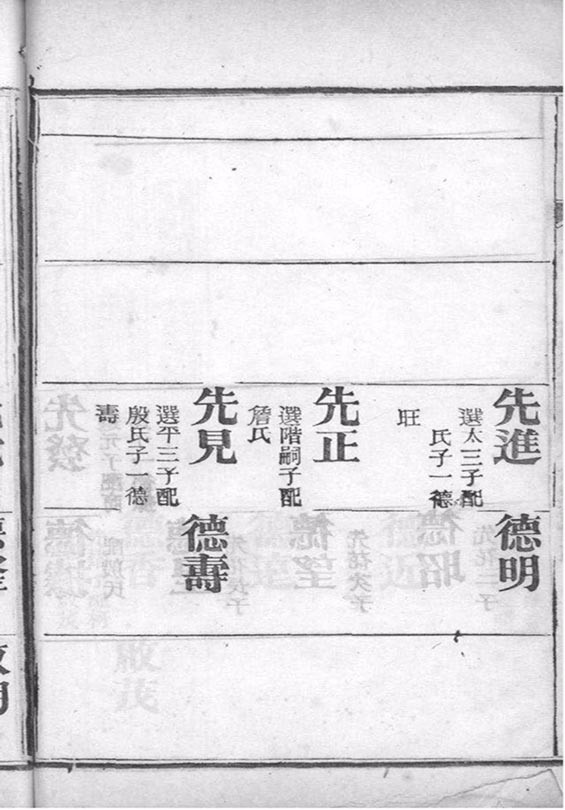 先進
選太三子配
氏子一德
旺
先正
選階嗣子配
詹氏
先見
選平三子配
殷氏子一德
壽
德明
德壽